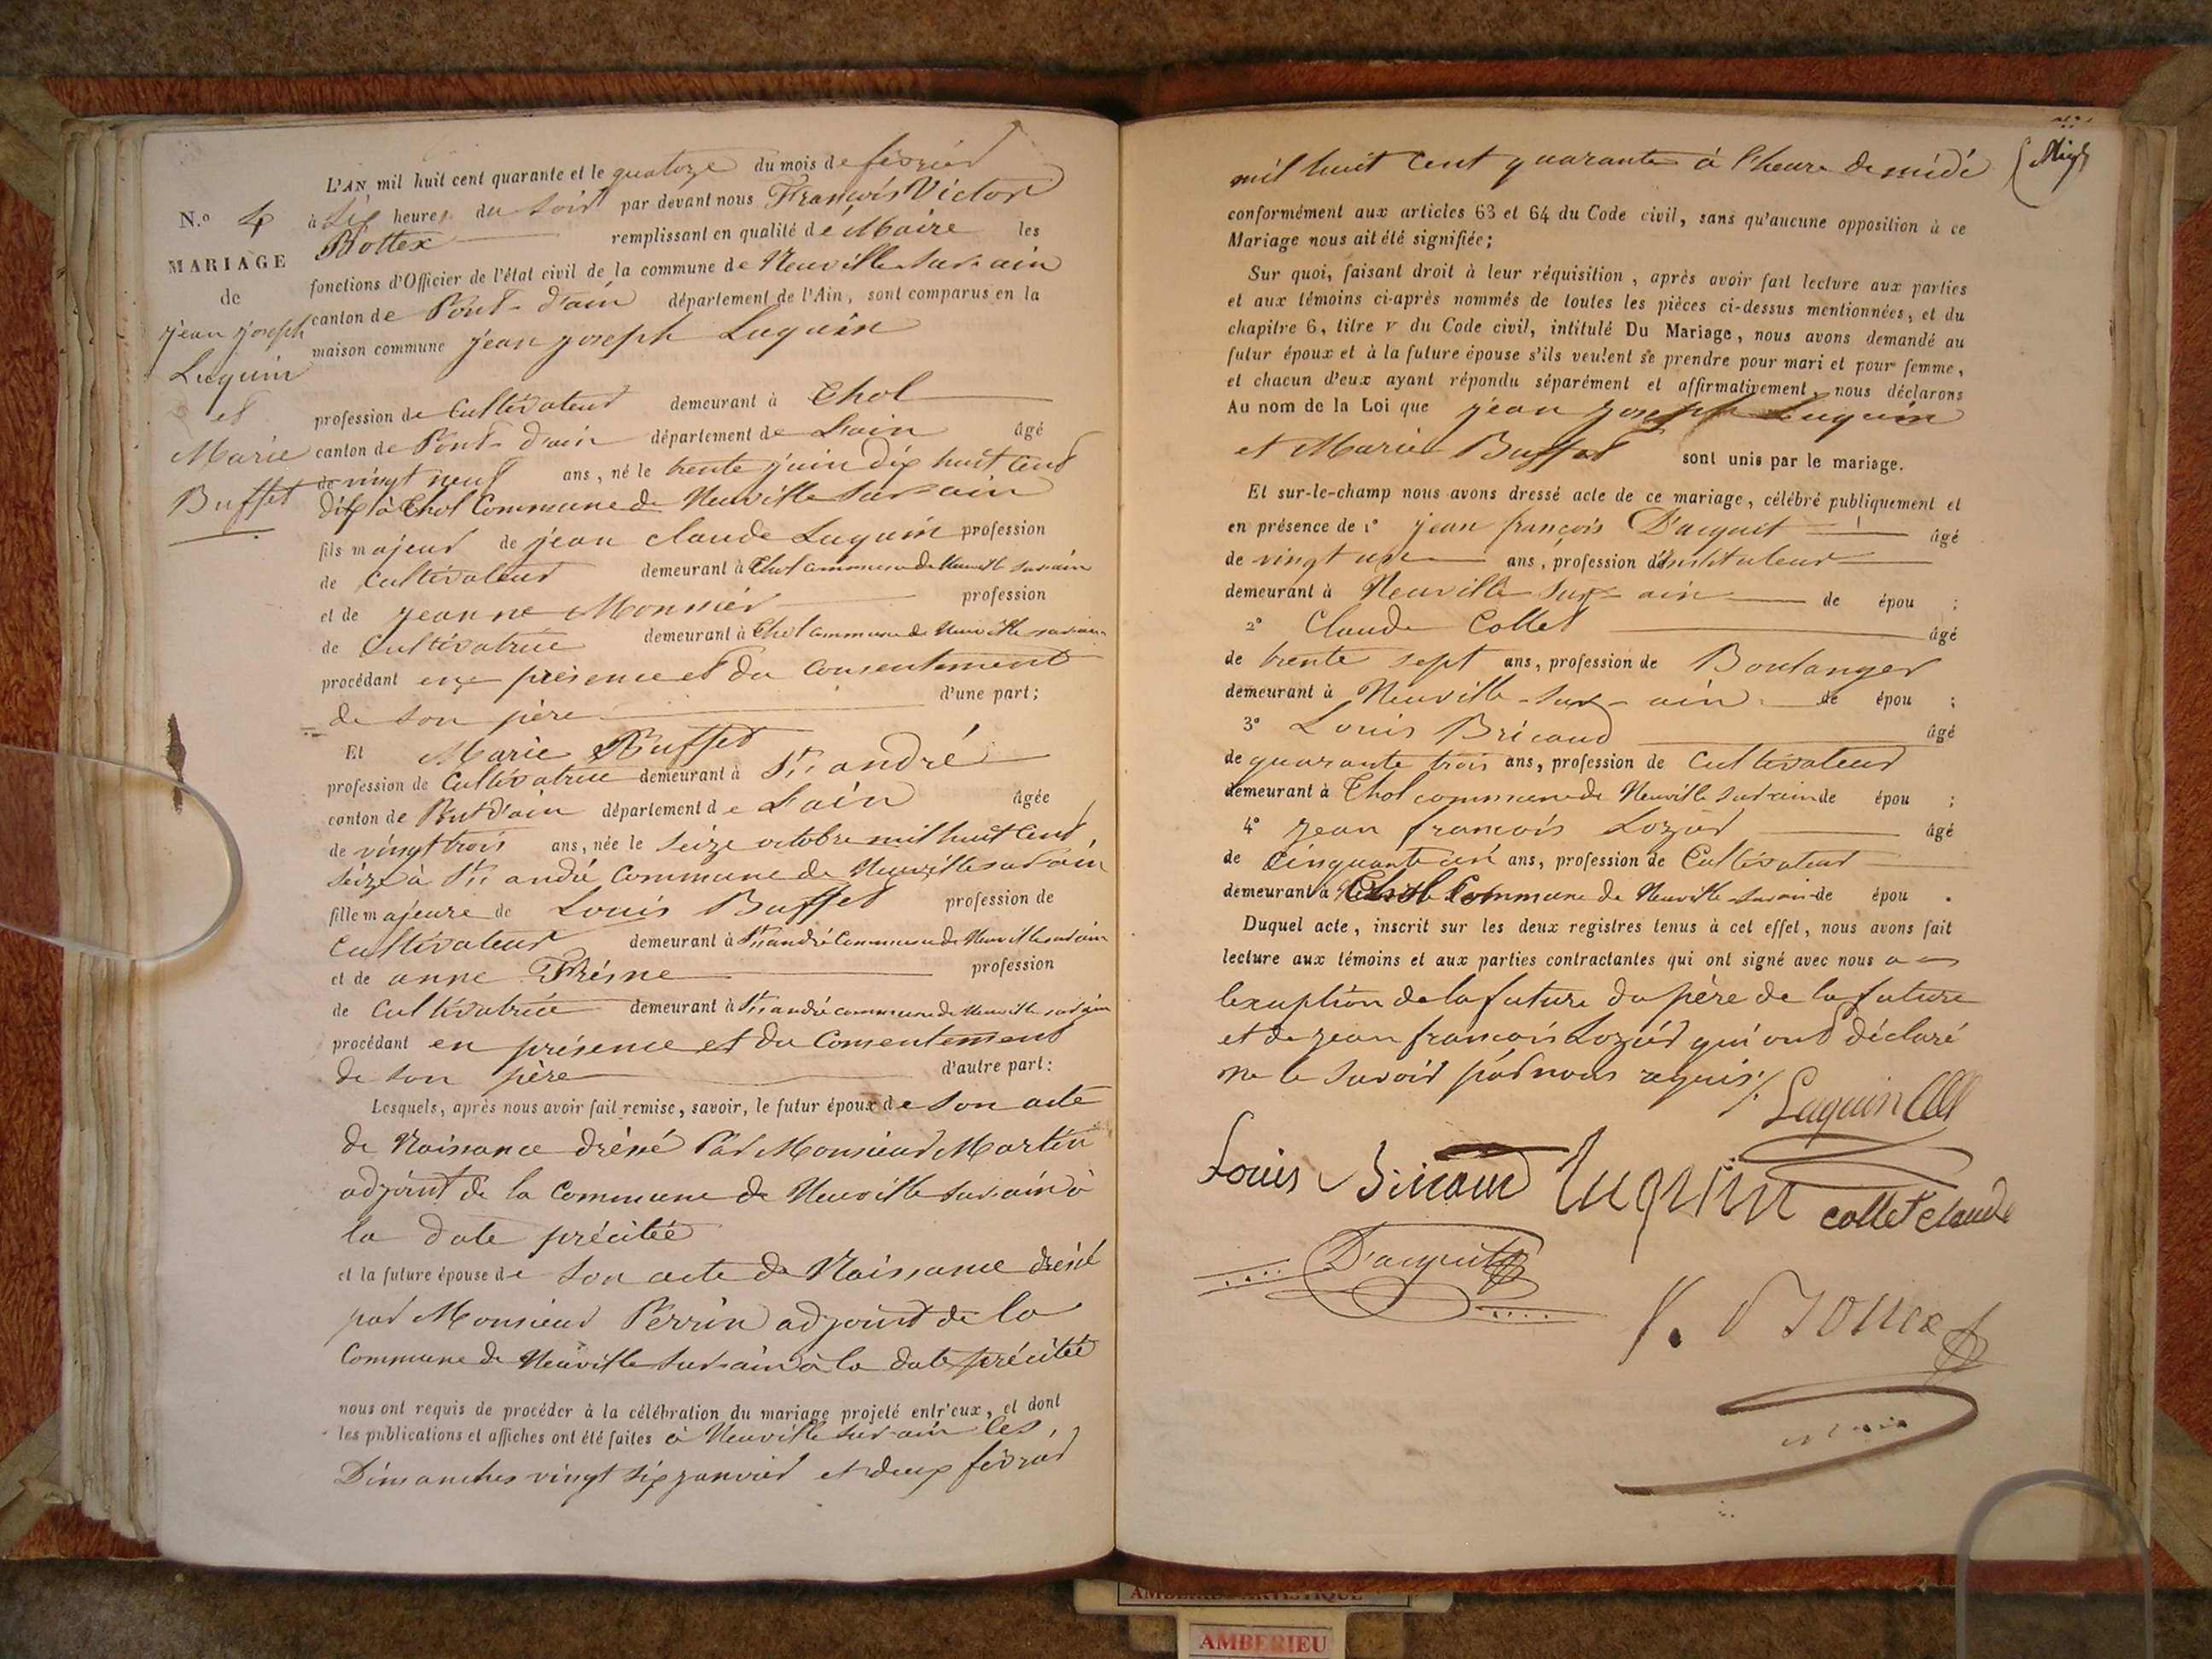 N.º 4
MARIAGE
de
jean joseph
Luquin
et
Marie
Buffet
L'AN mil huit cent quarante et le quatorze du mois de février
à six heures du soir par devant nous François Victor
Bottex remplissant en qualité de Maire les
fonctions d'Officier de l'état civil de la commune de Neuville sur ain
canton de Pont-d'ain département de l'Ain, sont comparus en la
maison commune jean joseph Luquin
profession de Cultivateur demeurant à Thol
canton de Pont-d'ain département de L'ain âgé
de vingt neuf ans, né le trente juin dix huit cent
dix à Thol Commune de Neuville sur ain
fils majeur de jean claude Luquin profession
de cultivateur demeurant à Thol commune de Neuville sur ain
et de jeanne Monnier profession
de Cultivatrice demeurant à Thol commune de Neuville sur ain
procédant en présence et du consentement
de son père d'une part;
Et Marie Buffet
profession de Cultivatrice demeurant à St. andré
canton de Pont d'ain département de L'ain âgée
de vingt trois ans, née le seize octobre mil huit cent
seize à St. andré commune de Neuville sur ain
fille majeure de Louis Buffet profession de
Cultivateur demeurant à St. andré commune de Neuville sur ain
et de anne Frésne profession
de Cultivatrice demeurant à St. andré commune de Neuville sur ain
procédant en présence et du Consentement
de son père d'autre part:
Lesquels, après nous avoir fait remise, savoir, le futur époux de son acte
de Naissance dressé Par Monsieur Martin
adjoint de la commune de Neuville sur ain à
la date précitée
et la future épouse de son acte de Naissance dressé
par Monsieur Perrin adjoint de la
Commune de Neuville sur ain à la date précitée
nous ont requis de procéder à la célébration du mariage projeté entr'eux, et dont
les publications et affiches ont été faites à Neuville sur ain les
Dimanches vingt six janvier et deux février
mil huit cent quarante à l'heure de midi
conformément aux articles 63 et 64 du Code civil, sans qu'aucune opposition à ce
Mariage nous ait été signifiée;
Sur quoi, faisant droit à leur réquisition, après avoir fait lecture aux parties
et aux témoins ci-après nommés de toutes les pièces ci-dessus mentionnées, et du
chapitre 6, titre v du Code civil, intitulé Du Mariage, nous avons demandé au
futur époux et à la future épouse s'ils veulent se prendre pour mari et pour femme,
et chacun d'eux ayant répondu séparément et affirmativement, nous déclarons
Au nom de la Loi que jean joseph Luquin
et Marie Buffet sont unis par le mariage.
Et sur-le-champ nous avons dressé acte de ce mariage, célébré publiquement et
en présence de 1º jean françois D'acquit âgé
de vingt une ans, profession d'instituteur
demeurant à Neuville sur ain de épou ;
2º Claude Collet âgé
de trente sept ans, profession de Boulanger
demeurant à Neuville-sur-ain de épou ;
3º Louis Bricaud âgé
de quarante trois ans, profession de Cultivateur
demeurant à Thol commune de Neuville sur ain de épou ;
4º jean françois Lozier âgé
de cinquante un ans, profession de Cultivateur
demeurant à Thol Commune de Neuville sur ain de épou .
Duquel acte, inscrit sur les deux registres tenus à cet effet, nous avons fait
lecture aux témoins et aux parties contractantes qui ont signé avec nous a
lexception de la future du père de la future
et de jean françois Lozier qui ont déclaré
ne le savoir par nous requis ./.
Luquin
Louis Bricaud Luquin collet claude
D'acquit
V. Bottex
AMBERIEU